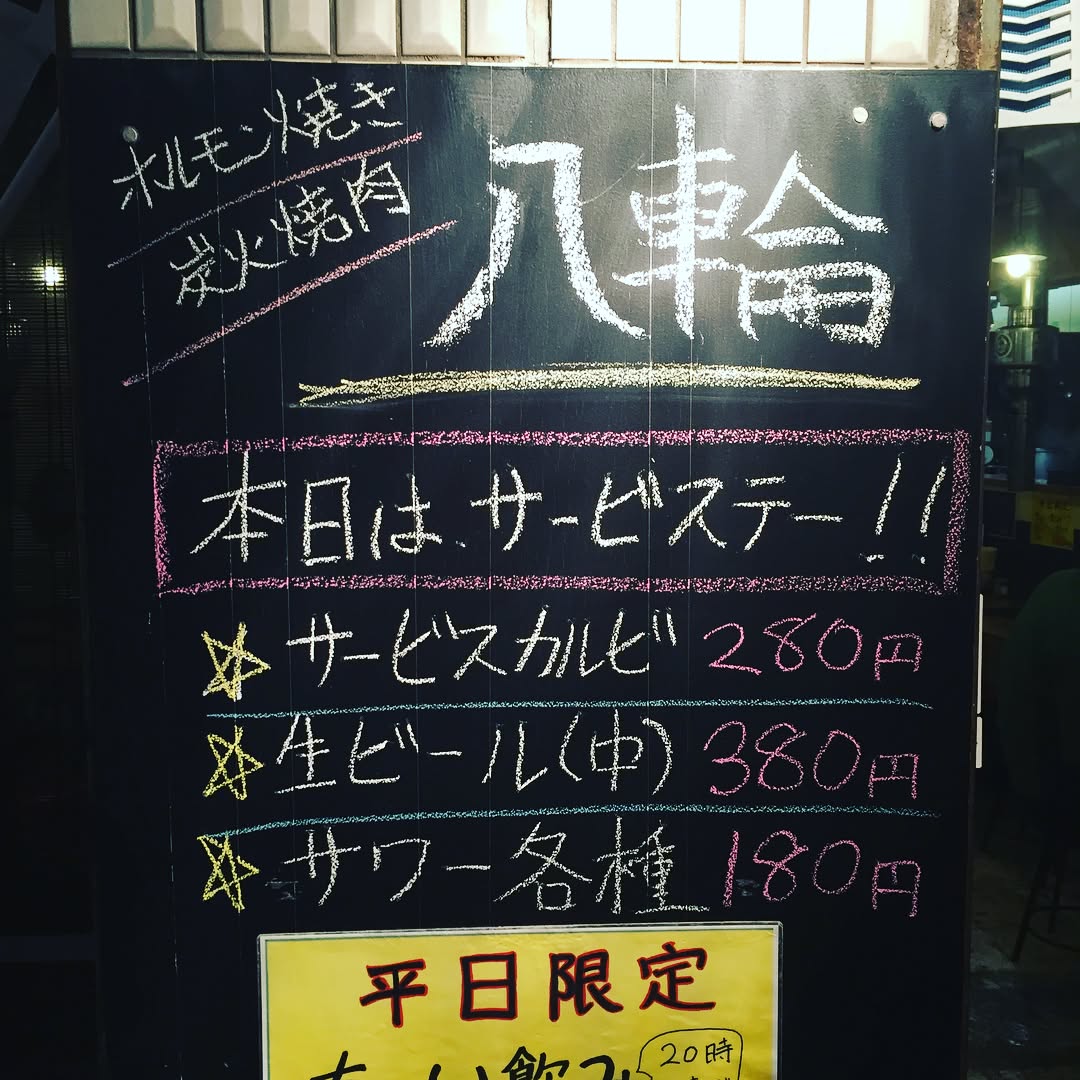 ホルモン焼き
炭火焼肉
八輪
本日は、サービステー!!
サービスカルビ 280円
生ビール(中) 380円
サワー各種 180円
平日限定
飲み
20時